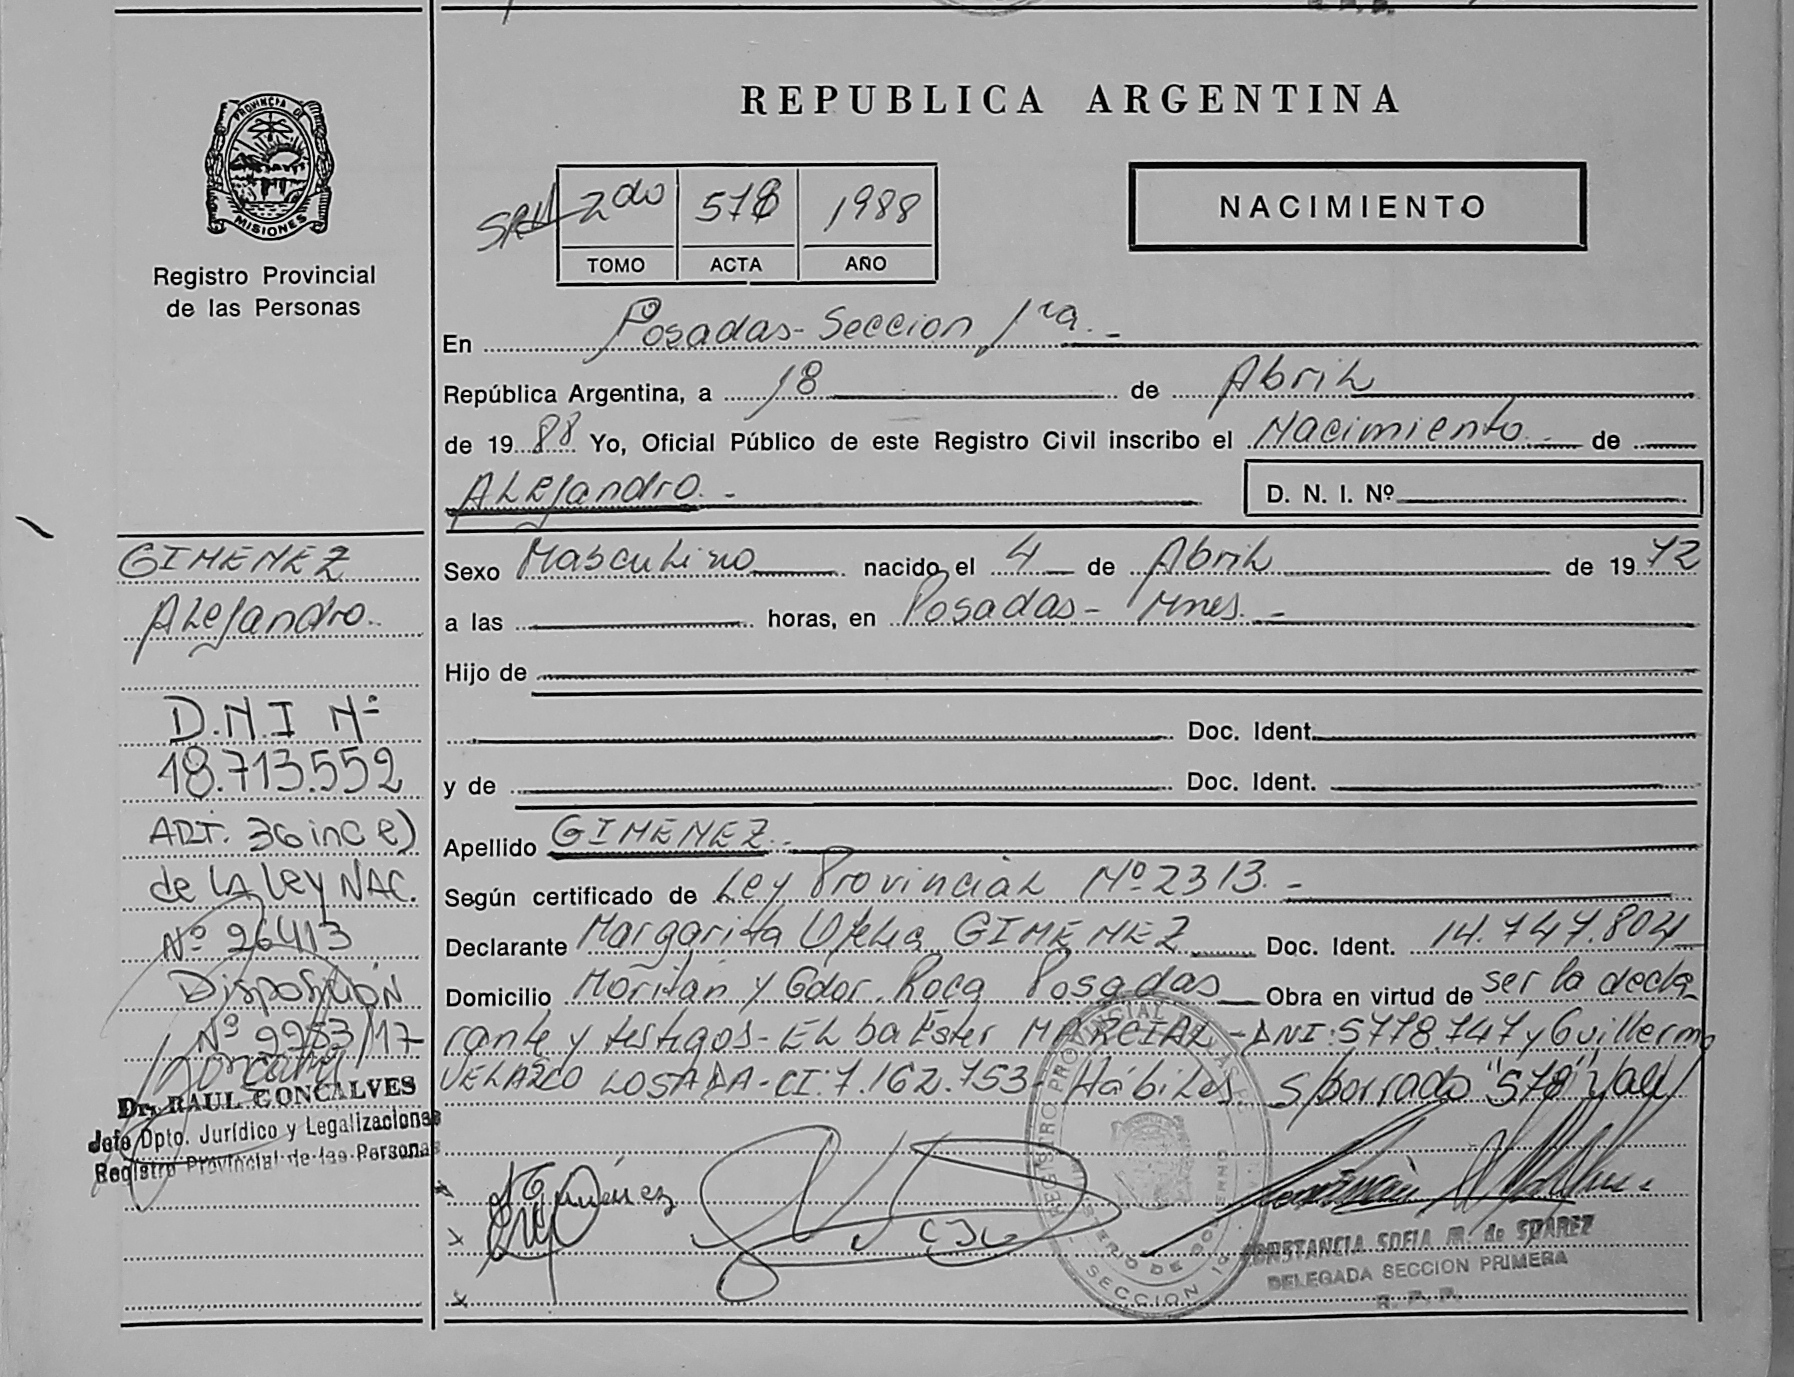 PROVINCIA DE
MISIONES
Registro Provincial
de las Personas
REPUBLICA ARGENTINA
2do 578 1988
TOMO ACTA AÑO
NACIMIENTO
En Posadas - Seccion 1ra. -
República Argentina, a 18 de Abril
de 1988 Yo, Oficial Público de este Registro Civil inscribo el Nacimiento de
Alejandro. - D. N. I. Nº
Sexo Masculino nacido el 4 de Abril de 1972
a las horas, en Posadas - Mnes. -
Hijo de
Doc. Ident.
y de Doc. Ident.
Apellido GIMENEZ. -
Según certificado de Ley Provincial Nº 2313. -
Declarante Margarita Ofelia GIMENEZ Doc. Ident. 14.747.804
Domicilio Moritan y Gdor. Roca Posadas Obra en virtud de ser la decla
rante y testigos - Elba Ester MARCIAL - DNI: 5778.747 y Guillermo
VELAZCO LOSADA - CI: 7.162.753 - Hábiles. S/borrado "578" Vale
GIMENEZ
Alejandro.
D.N.I Nº
18.713.552
ART. 36 inc e)
de LA Ley NAC.
Nº 26413
Disposición
Nº 9953/17
Dr. RAUL GONCALVES
Jefe Dpto. Jurídico y Legalizaciones
Registro Provincial de las Personas
Gimenez
REGISTRO PROVINCIAL DE LAS PE
MINISTERIO DE GOBIERNO
SECCION 1º
CONSTANCIA SOFIA M. de SUAREZ
DELEGADA SECCION PRIMERA
R. P. P.